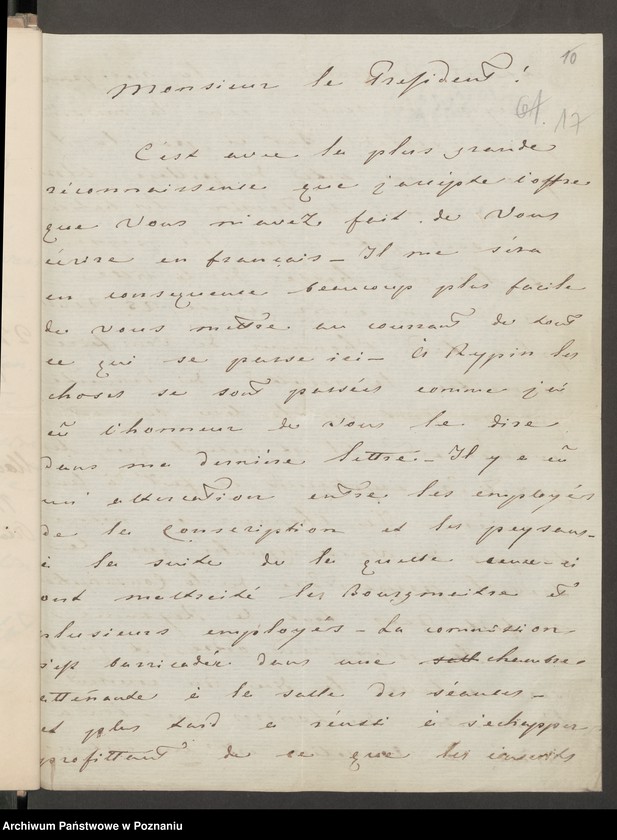 10
Monsieur le President!
64. 17
C'est avec la plus grande
réconnaissense que j'accepte l'offre
que Vous m'avez fait de Vous
écrire en français – Il me séra
en consequence beaucoup plus facile
de vous mettre au courrant de tout
ce qui se passe ici – A Rypin les
choses se sont passées comme j'ai
eû l'honneur de Vous le dire
dans ma dernière lettre – Il y a eû
un' altercation entre les employés
de la Conscription et les paysans –
à la suite de la quelle ceux-ci
ont maltraité les Bourgmeitre et
plusieurs employés – La commission
s'est barricadée dans une chambre
attenante à la salle des séances –
et plus tard a réussi à s'echapper
profittant de ce que les
Archiwum Państwowe w Poznaniu